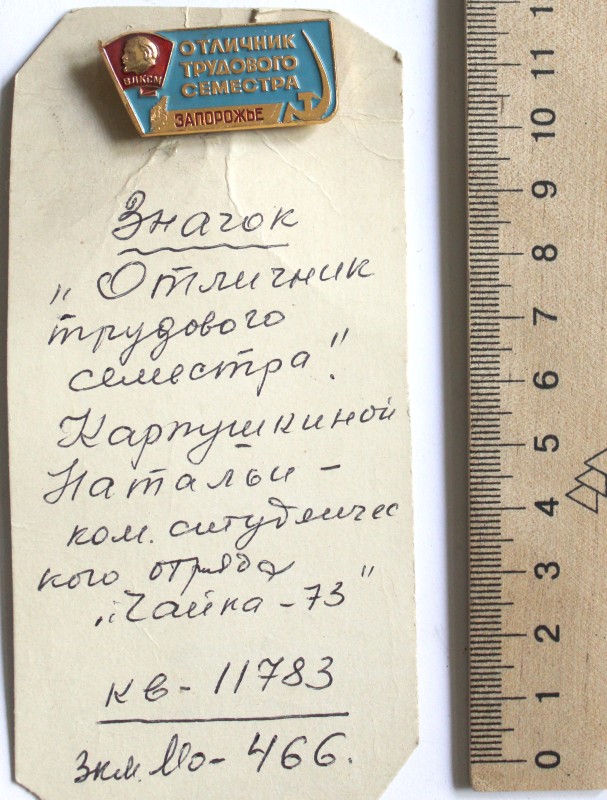 ВЛКСМ
ОТЛИЧНИК
ТРУДОВОГО
СЕМЕСТРА
ЗАПОРОЖЬЕ
Значок
„Отличник
трудового
семестра".
Карпушкиной
Натальи -
ком. студенчес
кого отряда
„Чайка - 73"
кв - 11783
Зкм. Мо - 466.
11
10
9
8
7
6
5
4
3
2
1
0